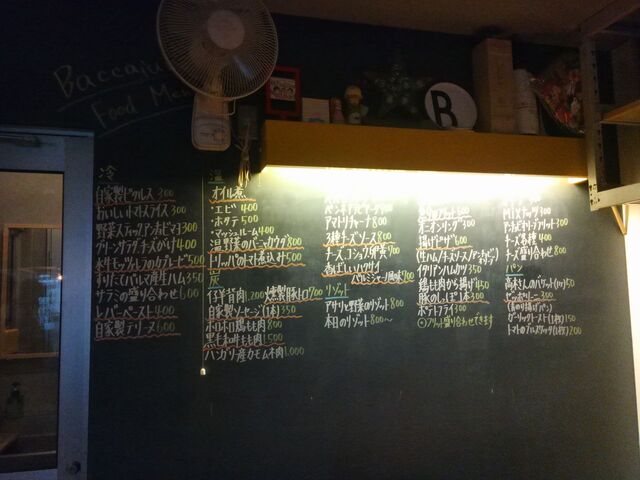 Food Me
B
冷
自家製ピクルス 300
おいしいトマトスライス 300
野菜スティックアンチョビマヨ 300
グリーンサラダ チーズがけ 400
水牛モッツァレラのカプレーゼ 500
切りたてパルマ産生ハム 350
サラミの盛り合わせ 600
レバーペースト 400
自家製テリーヌ 600
温
オイル煮
・エビ 400
・ホタテ 500
・マッシュルーム 400
温野菜のバーニャカウダ 800
トリッパのトマト煮込み 500
炭
仔羊背肉 1,200
燻製豚トロ 700
自家製ソーセージ(1本) 350
ホロホロ鶏もも肉 800
黒毛和牛もも肉 1,500
ハンガリー産カモムネ肉 1,000
アマトリチャーナ 800
3種チーズソース 800
香ばしいハマグリ
リゾット
アサリと野菜のリゾット 800
本日のリゾット 800〜
オニオンリング 300
イタリアンハムカツ 350
鶏もも肉から揚げ 450
豚のしっぽ 1本 300
ポテトフライ 300
盛り合わせできます
Mixナッツ 300
チーズ各種 400
チーズ盛り合わせ 800
パン
高木さんのバゲット 50
ガーリックトースト(1枚) 150
トマトのブルスケッタ(1枚) 200